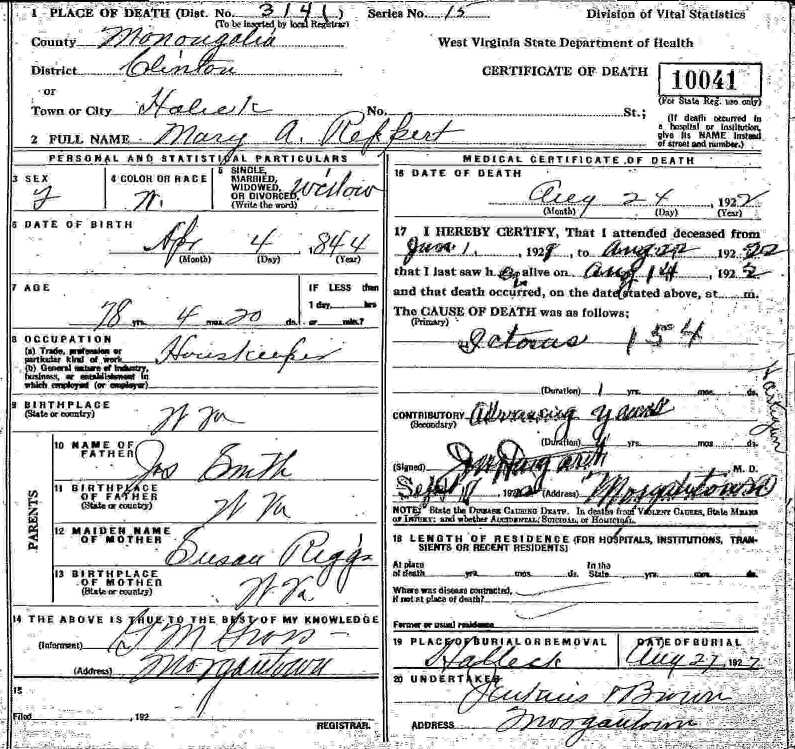 1 PLACE OF DEATH (Dist. No. 3141) Series No. 15
(To be inserted by local Registrar)
County Monongalia
District Clinton
or
Town or City Halleck No. St.;
2 FULL NAME Mary A. Reppert
Division of Vital Statistics
West Virginia State Department of Health
CERTIFICATE OF DEATH
10041
(For State Reg. use only)
(If death occurred in
a hospital or institution,
give its NAME instead
of street and number.)
PERSONAL AND STATISTICAL PARTICULARS
3 SEX
F
4 COLOR OR RACE
W.
5 SINGLE,
MARRIED,
WIDOWED,
OR DIVORCED,
(Write the word)
Widow
6 DATE OF BIRTH
Apr 4 844
(Month) (Day) (Year)
7 AGE
78 yrs. 4 mos. 20 ds.
IF LESS than
1 day, hrs
or min.?
8 OCCUPATION
(a) Trade, profession or
particular kind of work
(b) General nature of industry,
business, or establishment in
which employed (or employer)
Houskeeper
9 BIRTHPLACE
(State or country)
W Va
PARENTS
10 NAME OF
FATHER
Jas Smith
11 BIRTHPLACE
OF FATHER
(State or country)
W Va
12 MAIDEN NAME
OF MOTHER
Susan Riggs
13 BIRTHPLACE
OF MOTHER
(State or country)
W Va.
14 THE ABOVE IS TRUE TO THE BEST OF MY KNOWLEDGE
(Informant) G M Gross
(Address) Morgantown
15
Filed , 192
REGISTRAR.
MEDICAL CERTIFICATE OF DEATH
16 DATE OF DEATH
Aug 24 , 1922
(Month) (Day) (Year)
17 I HEREBY CERTIFY, That I attended deceased from
1, 192 , to Aug 22 192
that I last saw her alive on Aug 14 , 1922
and that death occurred, on the date stated above, at m.
The CAUSE OF DEATH was as follows:
(Primary)
154
(Duration) 1 yrs. mos. ds.
CONTRIBUTORY Advancing years
(Secondary)
(Duration) yrs. mos. ds.
(Signed) M. D.
Sept , 192 (Address) Morgantown
NOTE: State the DISEASE CAUSING DEATH. In deaths from VIOLENT CAUSES, State MEANS
OF INJURY; and whether ACCIDENTAL, SUICIDAL, or HOMICIDAL.
18 LENGTH OF RESIDENCE (FOR HOSPITALS, INSTITUTIONS, TRAN-
SIENTS OR RECENT RESIDENTS)
At place
of death yrs. mos. ds.
In the
State yrs. mos. ds.
Where was disease contracted,
if not at place of death?
Former or usual residence
19 PLACE OF BURIAL OR REMOVAL
Halleck
DATE OF BURIAL
Aug 27, 1922
20 UNDERTAKER
Jenkins & Brown
ADDRESS Morgantown